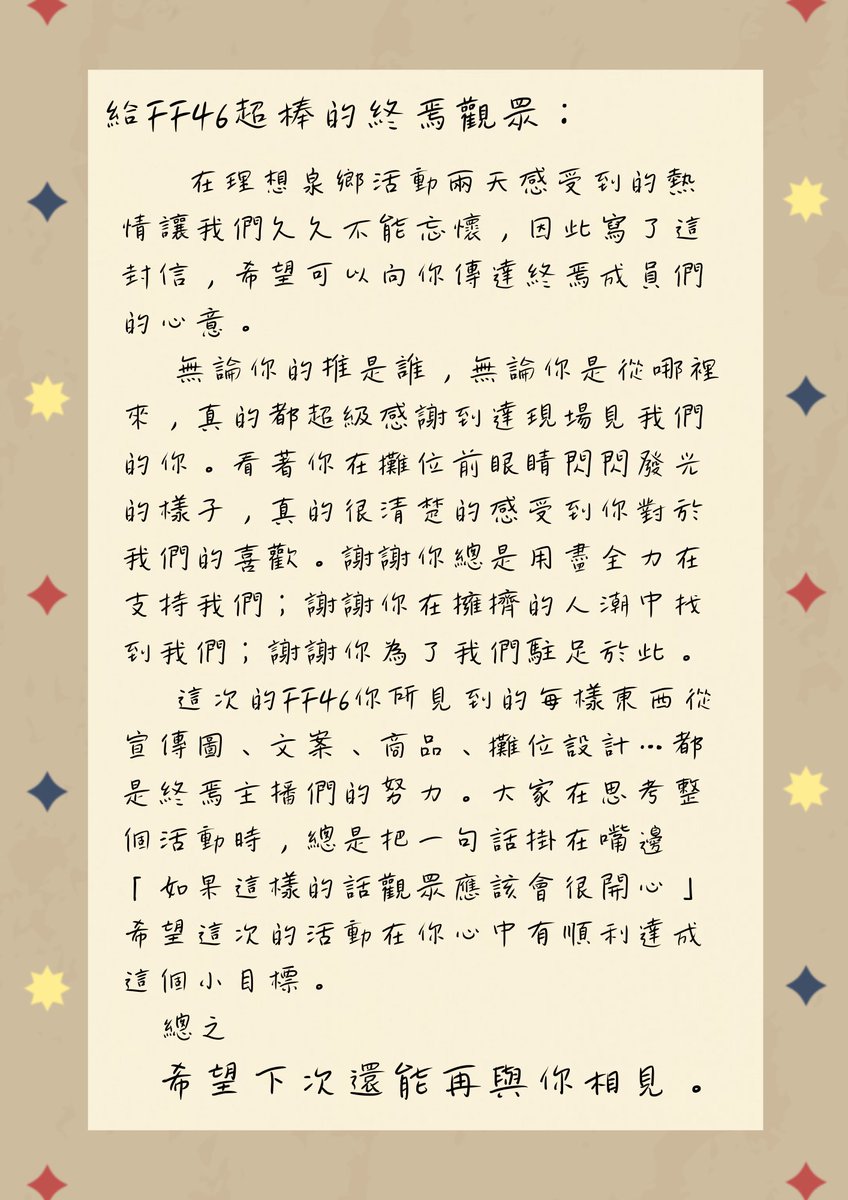 給FF46超棒的終焉觀眾：
在理想泉鄉活動兩天感受到的熱
情讓我們久久不能忘懷，因此寫了這
封信，希望可以向你傳達終焉成員們
的心意。
無論你的推是誰，無論你是從哪裡
來，真的都超級感謝到達現場見我們
的你。看著你在攤位前眼睛閃閃發光
的樣子，真的很清楚的感受到你對於
我們的喜歡。謝謝你總是用盡全力在
支持我們；謝謝你在擁擠的人潮中找
到我們；謝謝你為了我們駐足於此。
這次的FF46你所見到的每樣東西從
宣傳圖、文案、商品、攤位設計…都
是終焉主播們的努力。大家在思考整
個活動時，總是把一句話掛在嘴邊
「如果這樣的話觀眾應該會很開心」
希望這次的活動在你心中有順利達成
這個小目標。
總之
希望下次還能再與你相見。